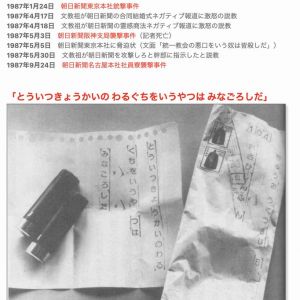 1987年1月24日　朝日新聞東京本社銃撃事件
1987年4月17日　文教祖が朝日新聞の合同結婚式ネガティブ報道に激怒の説教
1987年4月18日　文教祖が朝日新聞の霊感商法ネガティブ報道に激怒の説教
1987年5月3日　朝日新聞阪神支局襲撃事件（記者死亡）
1987年5月6日　朝日新聞東京本社に脅迫状（文面「統一教会の悪口をいう奴は皆殺しだ」）
1987年5月30日　文教祖が朝日新聞を攻撃しろと幹部に指示したと説教
1987年9月24日　朝日新聞名古屋本社社員寮襲撃事件
「とういつきょうかいの わるぐちをいうやつは みなごろしだ」
とういつきょうかいのわる
ぐちをいうやつは
みなごろしだ